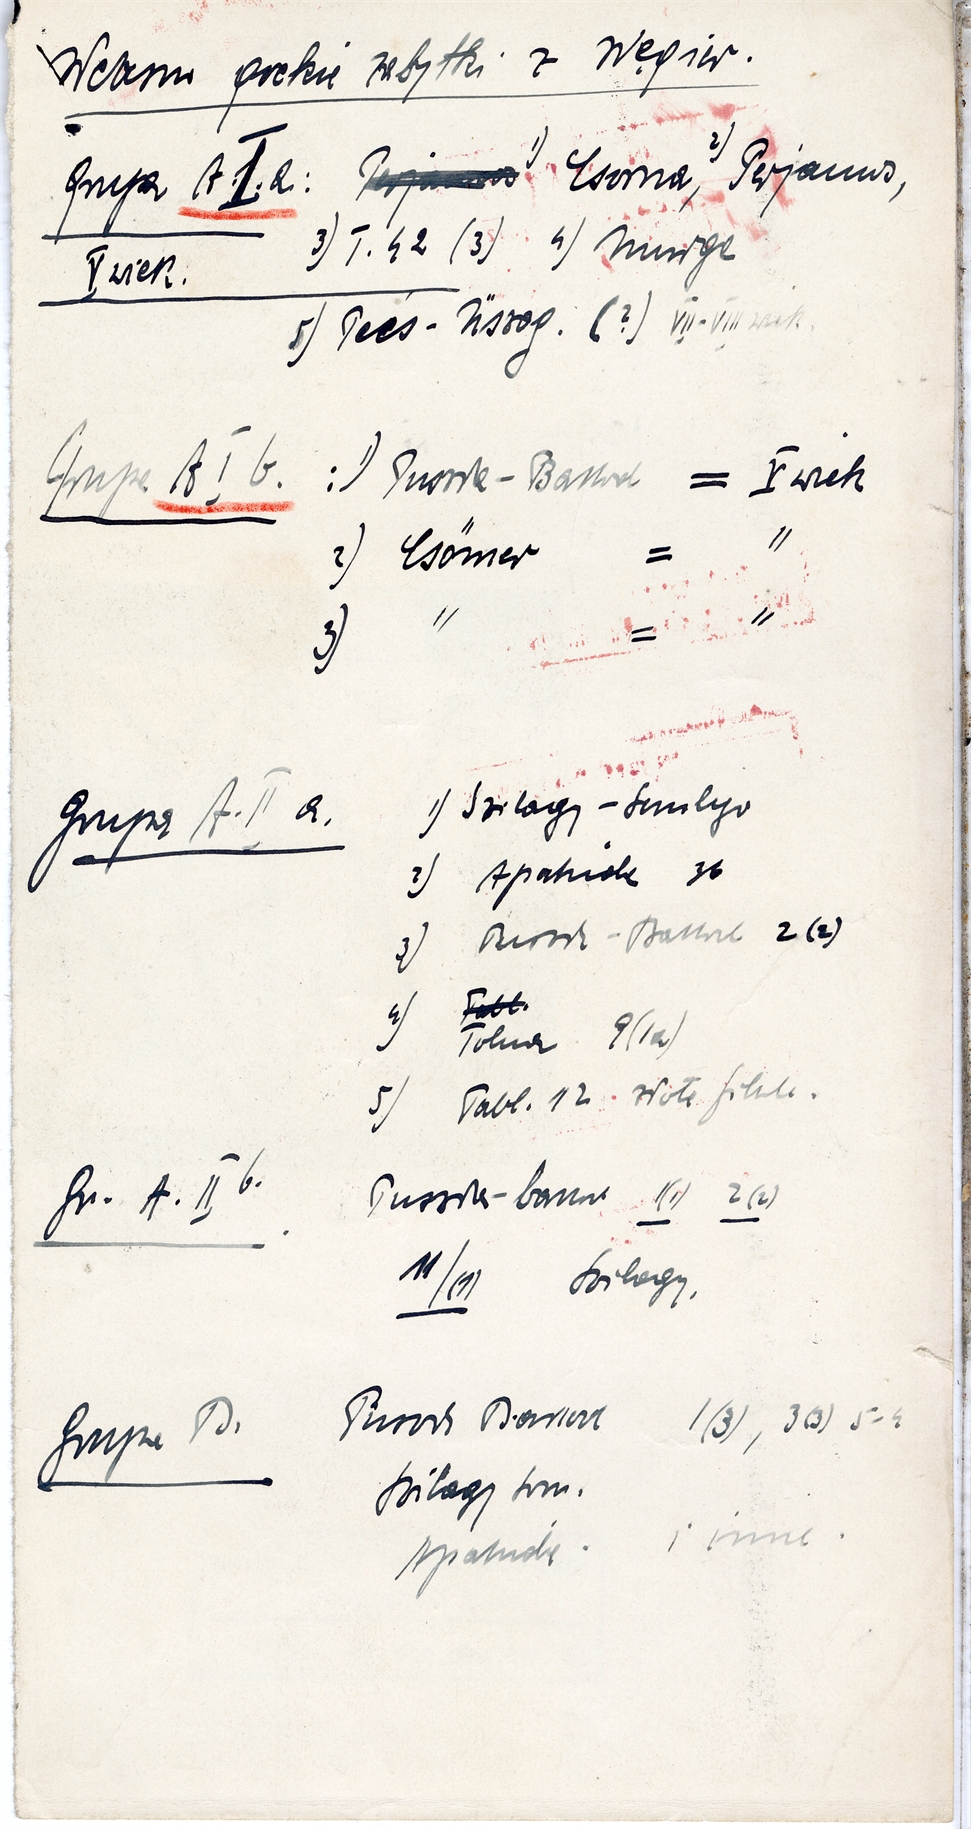 Wczesno gockie zabytki z Węgier.
Grupa A.I.a: 1) Csorna, 2) Perjamus,
V wiek. 3) T. 42 (3) 4) Murga
5) Pecs - Üszog. (?) VII-VIII wiek.
Grupa A I b. : 1) Puszta-Bakod = V wiek
2) Csömör = "
3) " = "
Grupa A.II a. 1) Szilagy - Somlyo
2) Apahida 36
3) Puszta - Bakod 2 (2)
4) Tabl.
Tolna 9 (1a)
5) Tabl. 12
Gr. A. II b. Puszta-bakod 1(1) 2(2)
11/(1) Szilagy.
Grupa B. Puszta Bakod 1(3), 3(3) 5-4
Szilagy Som.
Apahida. i inne.